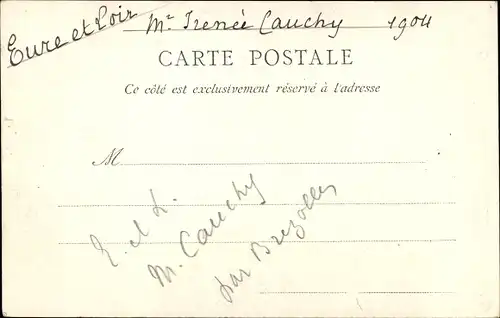 Eure et Loir
Mr Irenée Cauchy 1904
CARTE POSTALE
Ce côté est exclusivement réservé à l'adresse
M
E. et L.
M. Cauchy
par Brezolles